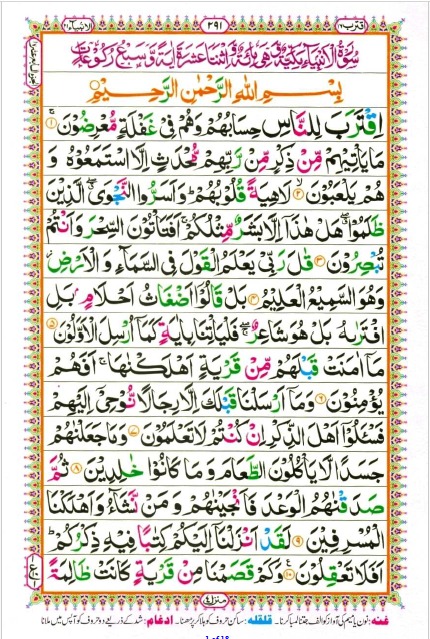 اقترب ١٧ ٢٩١ الانبیآء ٢١
سُوْرَةُ الْاَنْۢبِيَآءِ مَكِّيَّةٌ وَّهِىَ مِائَةٌ وَّاثْنَتَا عَشْرَةَ اٰيَةً وَّسَبْعُ رُكُوْعَاتٍ
بِسْمِ اللّٰهِ الرَّحْمٰنِ الرَّحِيْمِ
اِقْتَرَبَ لِلنَّاسِ حِسَابُهُمْ وَهُمْ فِىْ غَفْلَةٍ مُّعْرِضُوْنَ ۚ‏ ﴿١﴾
مَا يَاْتِيْهِمْ مِّنْ ذِكْرٍ مِّنْ رَّبِّهِمْ مُّحْدَثٍ اِلَّا اسْتَمَعُوْهُ وَ
هُمْ يَلْعَبُوْنَ ۙ‏ ﴿٢﴾ لَاهِيَةً قُلُوْبُهُمْ ؕ وَاَسَرُّوا النَّجْوَى ۖۗ الَّذِيْنَ
ظَلَمُوْا ۖۗ هَلْ هٰذَاۤ اِلَّا بَشَرٌ مِّثْلُكُمْ ۚ اَفَتَاْتُوْنَ السِّحْرَ وَاَنْتُمْ
تُبْصِرُوْنَ ﴿٣﴾ قٰلَ رَبِّىْ يَعْلَمُ الْقَوْلَ فِى السَّمَآءِ وَ الْاَرْضِ ؗ
وَهُوَ السَّمِيْعُ الْعَلِيْمُ ﴿٤﴾ بَلْ قَالُوْۤا اَضْغَاثُ اَحْلَامٍۢ بَلِ
افْتَرٰٮهُ بَلْ هُوَ شَاعِرٌ ۖۚ فَلْيَاْتِنَا بِاٰيَةٍ كَمَاۤ اُرْسِلَ الْاَوَّلُوْنَ ﴿٥﴾
مَاۤ اٰمَنَتْ قَبْلَهُمْ مِّنْ قَرْيَةٍ اَهْلَكْنٰهَا ۚ اَفَهُمْ
يُؤْمِنُوْنَ ﴿٦﴾ وَمَاۤ اَرْسَلْنَا قَبْلَكَ اِلَّا رِجَالًا نُّوْحِىْۤ اِلَيْهِمْ
فَسْـَٔلُوْۤا اَهْلَ الذِّكْرِ اِنْ كُنْتُمْ لَا تَعْلَمُوْنَ ﴿٧﴾ وَمَا جَعَلْنٰهُمْ
جَسَدًا لَّا يَاْكُلُوْنَ الطَّعَامَ وَمَا كَانُوْا خٰلِدِيْنَ ﴿٨﴾ ثُمَّ
صَدَقْنٰهُمُ الْوَعْدَ فَاَنْجَيْنٰهُمْ وَ مَنْ نَّشَآءُ وَاَهْلَكْنَا
الْمُسْرِفِيْنَ ﴿٩﴾ لَقَدْ اَنْزَلْنَاۤ اِلَيْكُمْ كِتٰبًا فِيْهِ ذِكْرُكُمْ ؕ
اَفَلَا تَعْقِلُوْنَ ﴿١٠﴾ وَكَمْ قَصَمْنَا مِنْ قَرْيَةٍ كَانَتْ ظَالِمَةً
منزل ٤
غنه: نون یا میم کی آواز کو الف جتنا لمبا کرنا۔ قلقله: ساکن حروف کو ہلا کر پڑھنا۔ ادغام: شد کے ذریعے دو حروف کو آپس میں ملانا
1 of 18